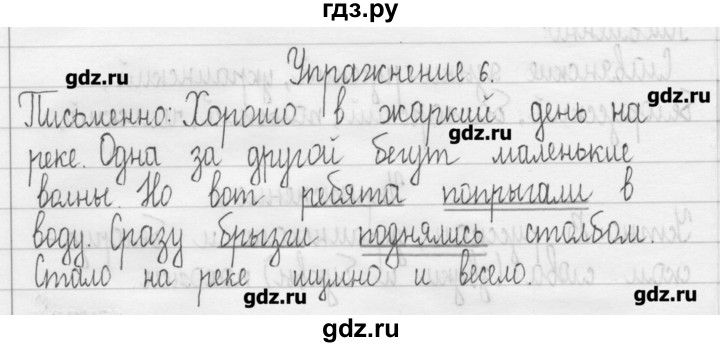 гдз.ру
Упражнение 6.
gdz.ru
Письменно: Хорошо в жаркий день на
gdz.ru
gdz.ru
реке. Одна за другой бегут маленькие
волны. Но вот ребята попрыгали в
воду. Сразу брызги поднялись столбом.
Стало на реке шумно и весело.
gdz.ru
gdz.ru
gdz.ru